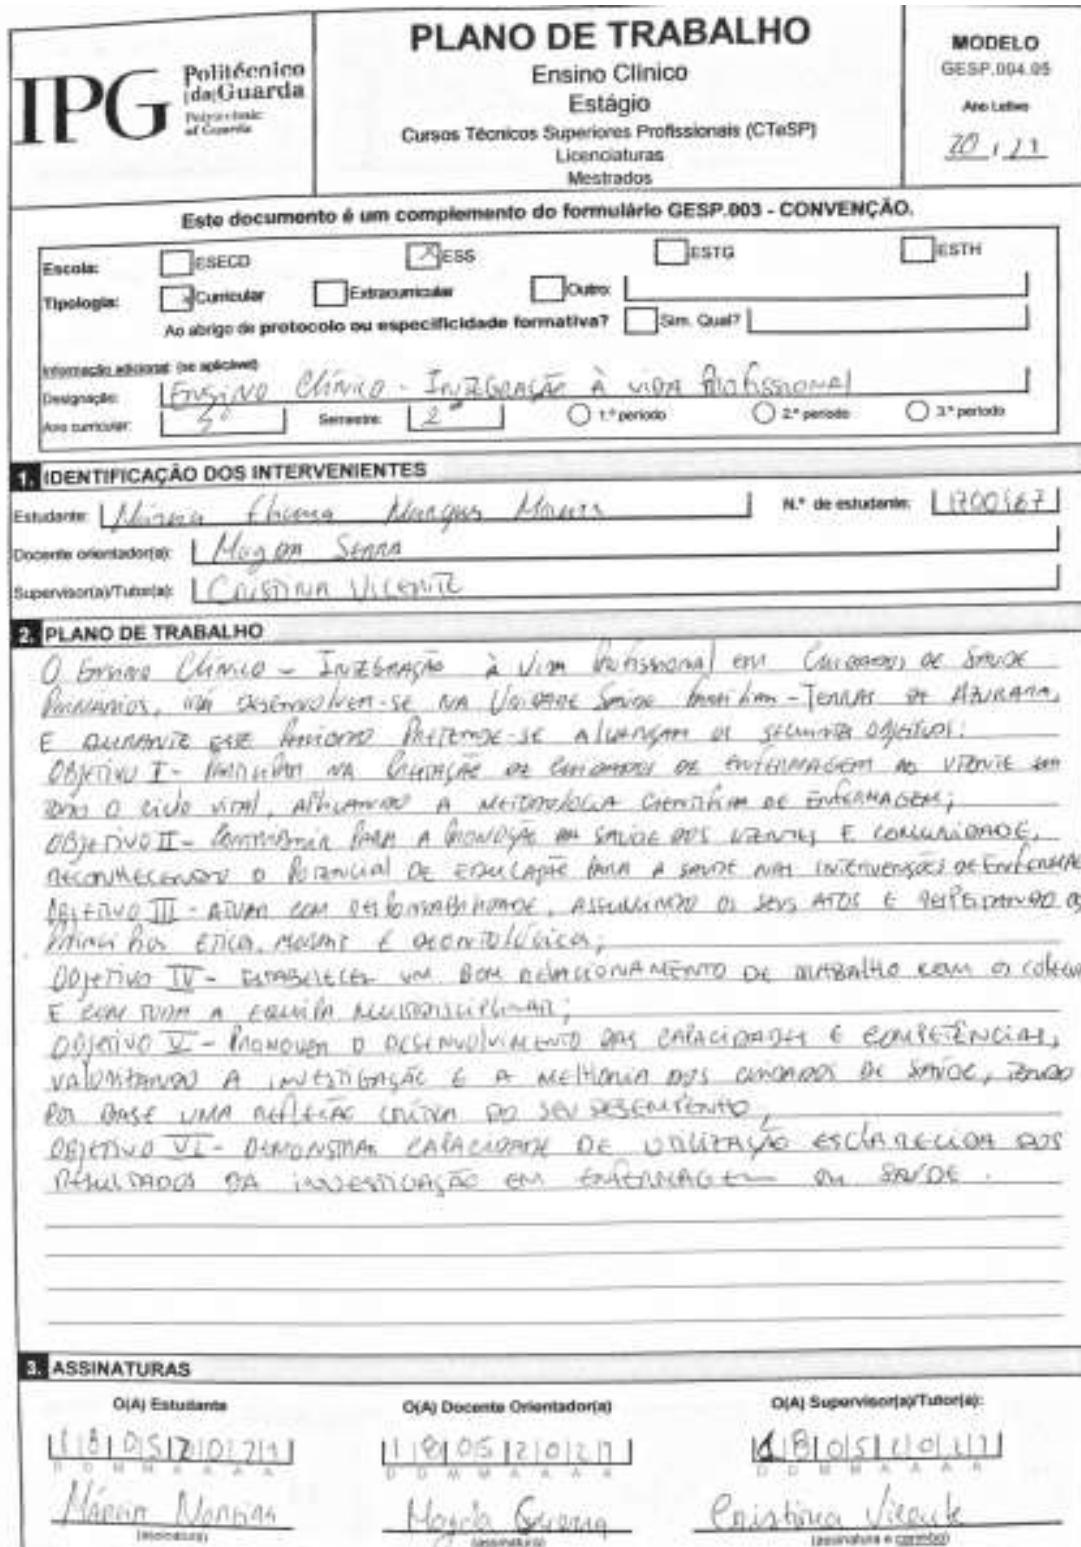 IPG
Politécnico
|da|Guarda
Polytechnic
of Guarda
PLANO DE TRABALHO
Ensino Clínico
Estágio
Cursos Técnicos Superiores Profissionais (CTeSP)
Licenciaturas
Mestrados
MODELO
GESP.004.05
Ano Letivo
20 / 21
Este documento é um complemento do formulário GESP.003 - CONVENÇÃO.
Escola: ESECD X ESS ESTG ESTH
Tipologia: x Curricular Extracurricular Outro:
Ao abrigo de protocolo ou especificidade formativa? Sim. Qual?
Informação adicional: (se aplicável)
Designação: ENSINO CLÍNICO - INTEGRAÇÃO À VIDA PROFISSIONAL
Ano curricular: Semestre: 2º 1.º período 2.º período 3.º período
1. IDENTIFICAÇÃO DOS INTERVENIENTES
Estudante: Marques N.º de estudante:
Docente orientador(a): Magda
Supervisor(a)/Tutor(a): CRISTINA VICENTE
2. PLANO DE TRABALHO
O ENSINO CLÍNICO - INTEGRAÇÃO À VIDA PROFISSIONAL EM CUIDADOS DE SAÚDE
PRIMÁRIOS, IRÁ DESENVOLVER-SE NA UNIDADE SAÚDE FAMILIAR - TERRAS DE AZURARA,
E DURANTE ESSE PERÍODO PRETENDE-SE ALCANÇAR OS SEGUINTES OBJETIVOS:
OBJETIVO I - PARTICIPAR NA PRESTAÇÃO DE CUIDADOS DE ENFERMAGEM AO UTENTE EM
TODO O CICLO VITAL, APLICANDO A METODOLOGIA CIENTÍFICA DE ENFERMAGEM;
OBJETIVO II - CONTRIBUIR PARA A PROMOÇÃO DA SAÚDE DOS UTENTES E COMUNIDADE,
RECONHECENDO O POTENCIAL DE EDUCAÇÃO PARA A SAÚDE NAS INTERVENÇÕES DE ENFERMAGEM
OBJETIVO III - ATUAR COM RESPONSABILIDADE, ASSUMINDO OS SEUS ATOS E RESPEITANDO OS
PRINCÍPIOS ÉTICOS, MORAIS E DEONTOLÓGICOS;
OBJETIVO IV - ESTABELECER UM BOM RELACIONAMENTO DE TRABALHO COM OS COLEGAS
E COM TODA A EQUIPA MULTIDISCIPLINAR;
OBJETIVO V - PROMOVER O DESENVOLVIMENTO DAS CAPACIDADES E COMPETÊNCIAS,
VALORIZANDO A INVESTIGAÇÃO E A MELHORIA DOS CUIDADOS DE SAÚDE, TENDO
POR BASE UMA REFLEXÃO CRÍTICA DO SEU DESEMPENHO;
OBJETIVO VI - DEMONSTRAR CAPACIDADE DE UTILIZAÇÃO ESCLARECIDA DOS
RESULTADOS DA INVESTIGAÇÃO EM ENFERMAGEM OU SAÚDE.
3. ASSINATURAS
O(A) Estudante O(A) Docente Orientador(a) O(A) Supervisor(a)/Tutor(a):
18052021 18052021 18052021
D D M M A A A A D D M M A A A A D D M M A A A A
Magda Cristina Vicente
(assinatura) (assinatura) (assinatura e carimbo)